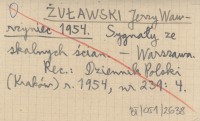 ŻUŁAWSKI Jerzy Waw-
rzyniec 1954. Sygnały ze
skalnych ścian. – Warszawa.
Rec.: Dziennik Polski
(Kraków) r. 1954, nr 239: 4.